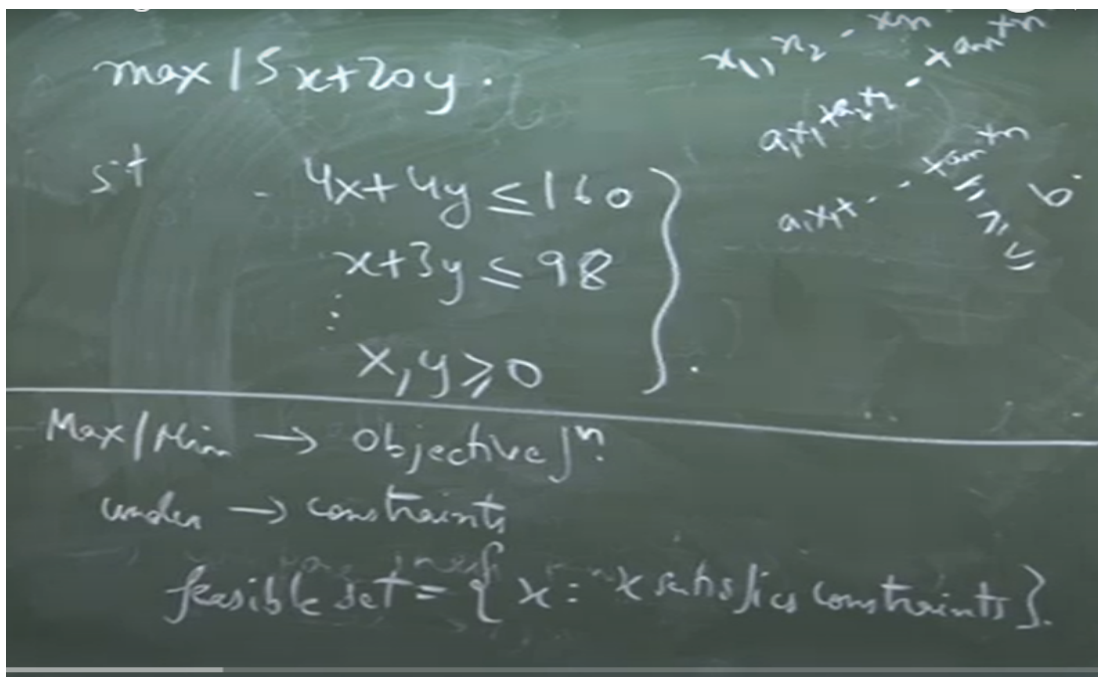 max 15x+20y.
s.t 4x+4y ≤ 160
x+3y ≤ 98
:
x, y ≥ 0
x1, x2 - xn
a1x1+a2x2 - +amxn
a1x1+ - - +amxn = ≥ ≤ b
Max/Min → Objective fn.
under → constraints
feasible set = { x : x satisfies constraints}.